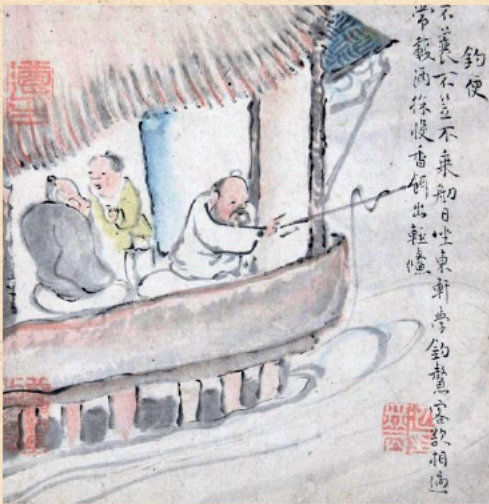 釣便
不蓑不笠不乗舠日坐東軒学釣鰲客欲相過
常載酒徐投香餌出軽鯈